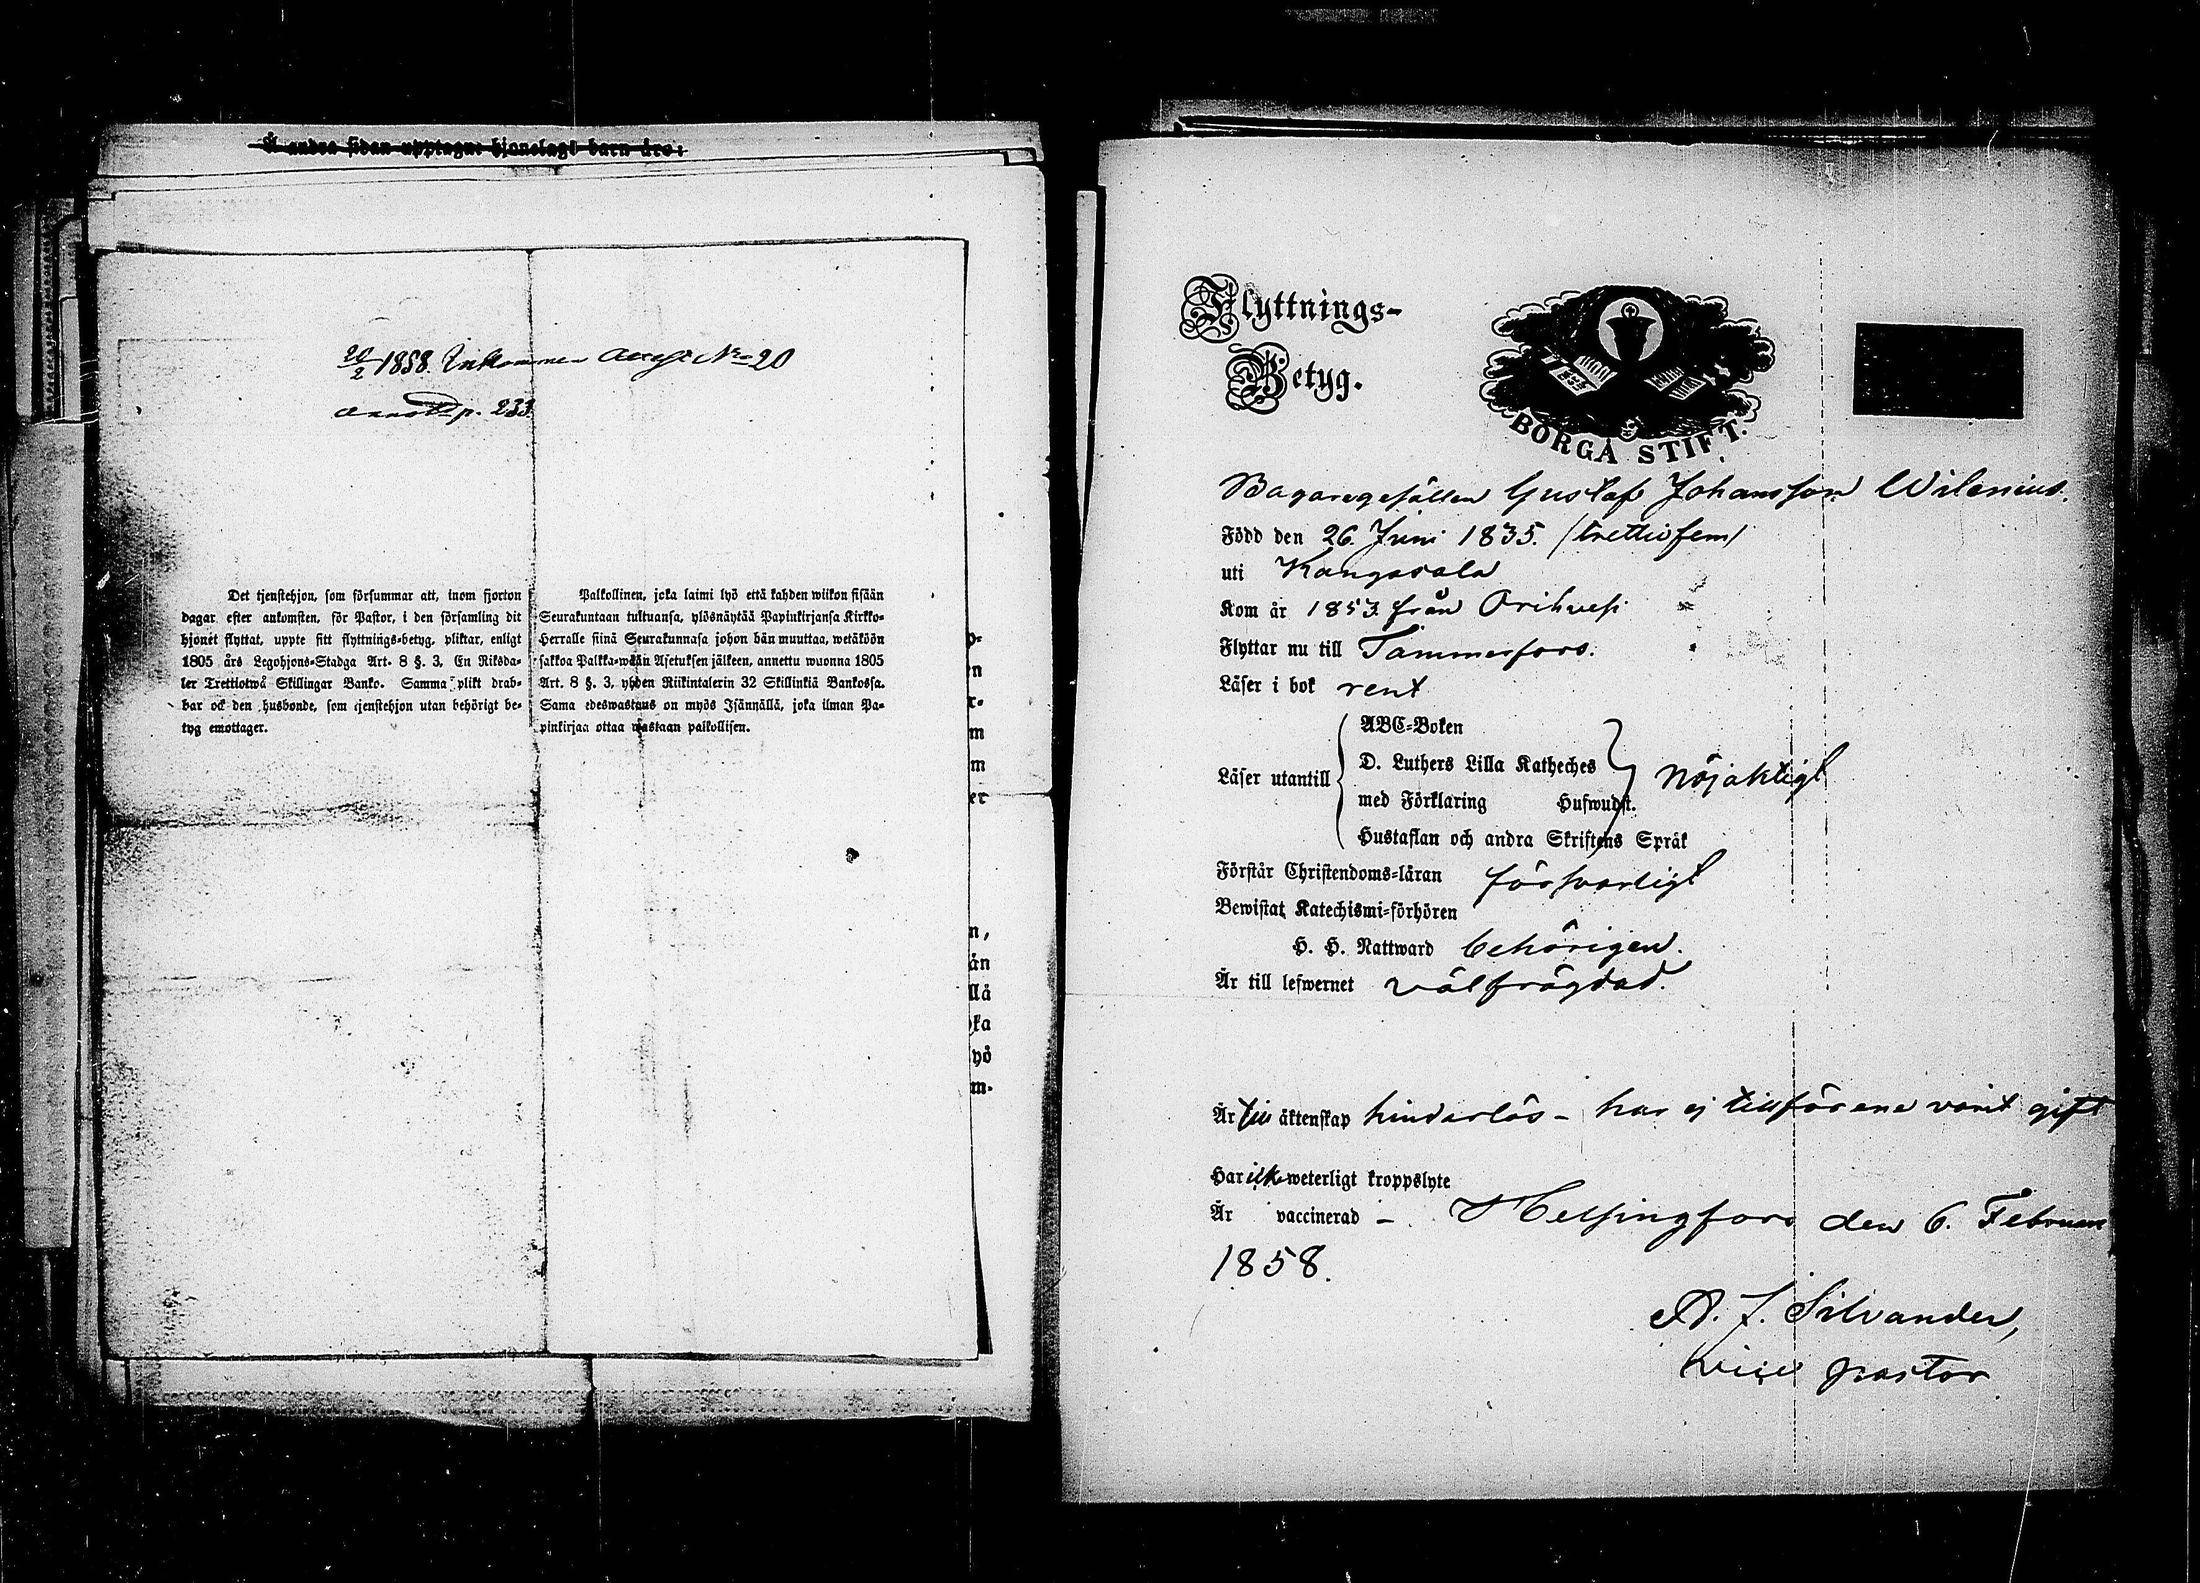 Å andra sidan upptagne hjonelagt barn äro:
20/2 1858. Inkommen Attest No 20
annot. p. 233.
Det tjenstehjon, som försummar att, inom fjorton
dagar efter ankomsten, för Pastor, i den församling dit
hjonet flyttat, uppte sitt flyttnings-betyg, pliktar, enligt
1805 års Legohjons-Stadga Art. 8 §. 3, En Riksda-
ler Trettiotwå Skillingar Banko. Samma plikt drab-
bar ock den husbonde, som tjenstehjon utan behörigt be-
tyg emottager.
Palkollinen, joka laimi lyö että kahden wiikon sisään
Seurakuntaan tultuansa, ylösnäytää Papinkirjansa Kirkko-
Herralle siinä Seurakunnasa johon hän muuttaa, wetäköön
sakkoa Palkka-wään Asetuksen jälkeen, annettu wuonna 1805
Art. 8 §. 3, yhden Riikintalerin 32 Skillinkiä Bankossa.
Sama edeswastaus on myös Isännällä, joka ilman Pa-
pinkirjaa ottaa wastaan palkollisen.
n,
än
llä
ka
yö
m-
Flyttnings-
Betyg.
BORGÅ STIFT.
Bagaregesällen Gustaf Johansson Wilenius.
Född den 26. Juni 1835. /trettiofem/
uti Kangasala
Kom år 1853 från Orihvesi
Flyttar nu till Tammerfors.
Läser i bok rent
Läser utantill
ABC-Boken
D. Luthers Lilla Katheches
med Förklaring Hufwudst.
Hustaflan och andra Skriftens Språk
nöjaktigt
Förstår Christendoms-läran försvarligt
Bewistat Katechismi-förhören
H. H. Nattward behörigen.
Är till lefwernet välfrägdad.
Är till äktenskap hinderlös - har ej tillförene varit gift
Har ick weterligt kroppslyte
Är vaccinerad - Helsingfors den 6. Februari
1858.
A. J. Silvander,
vice pastor